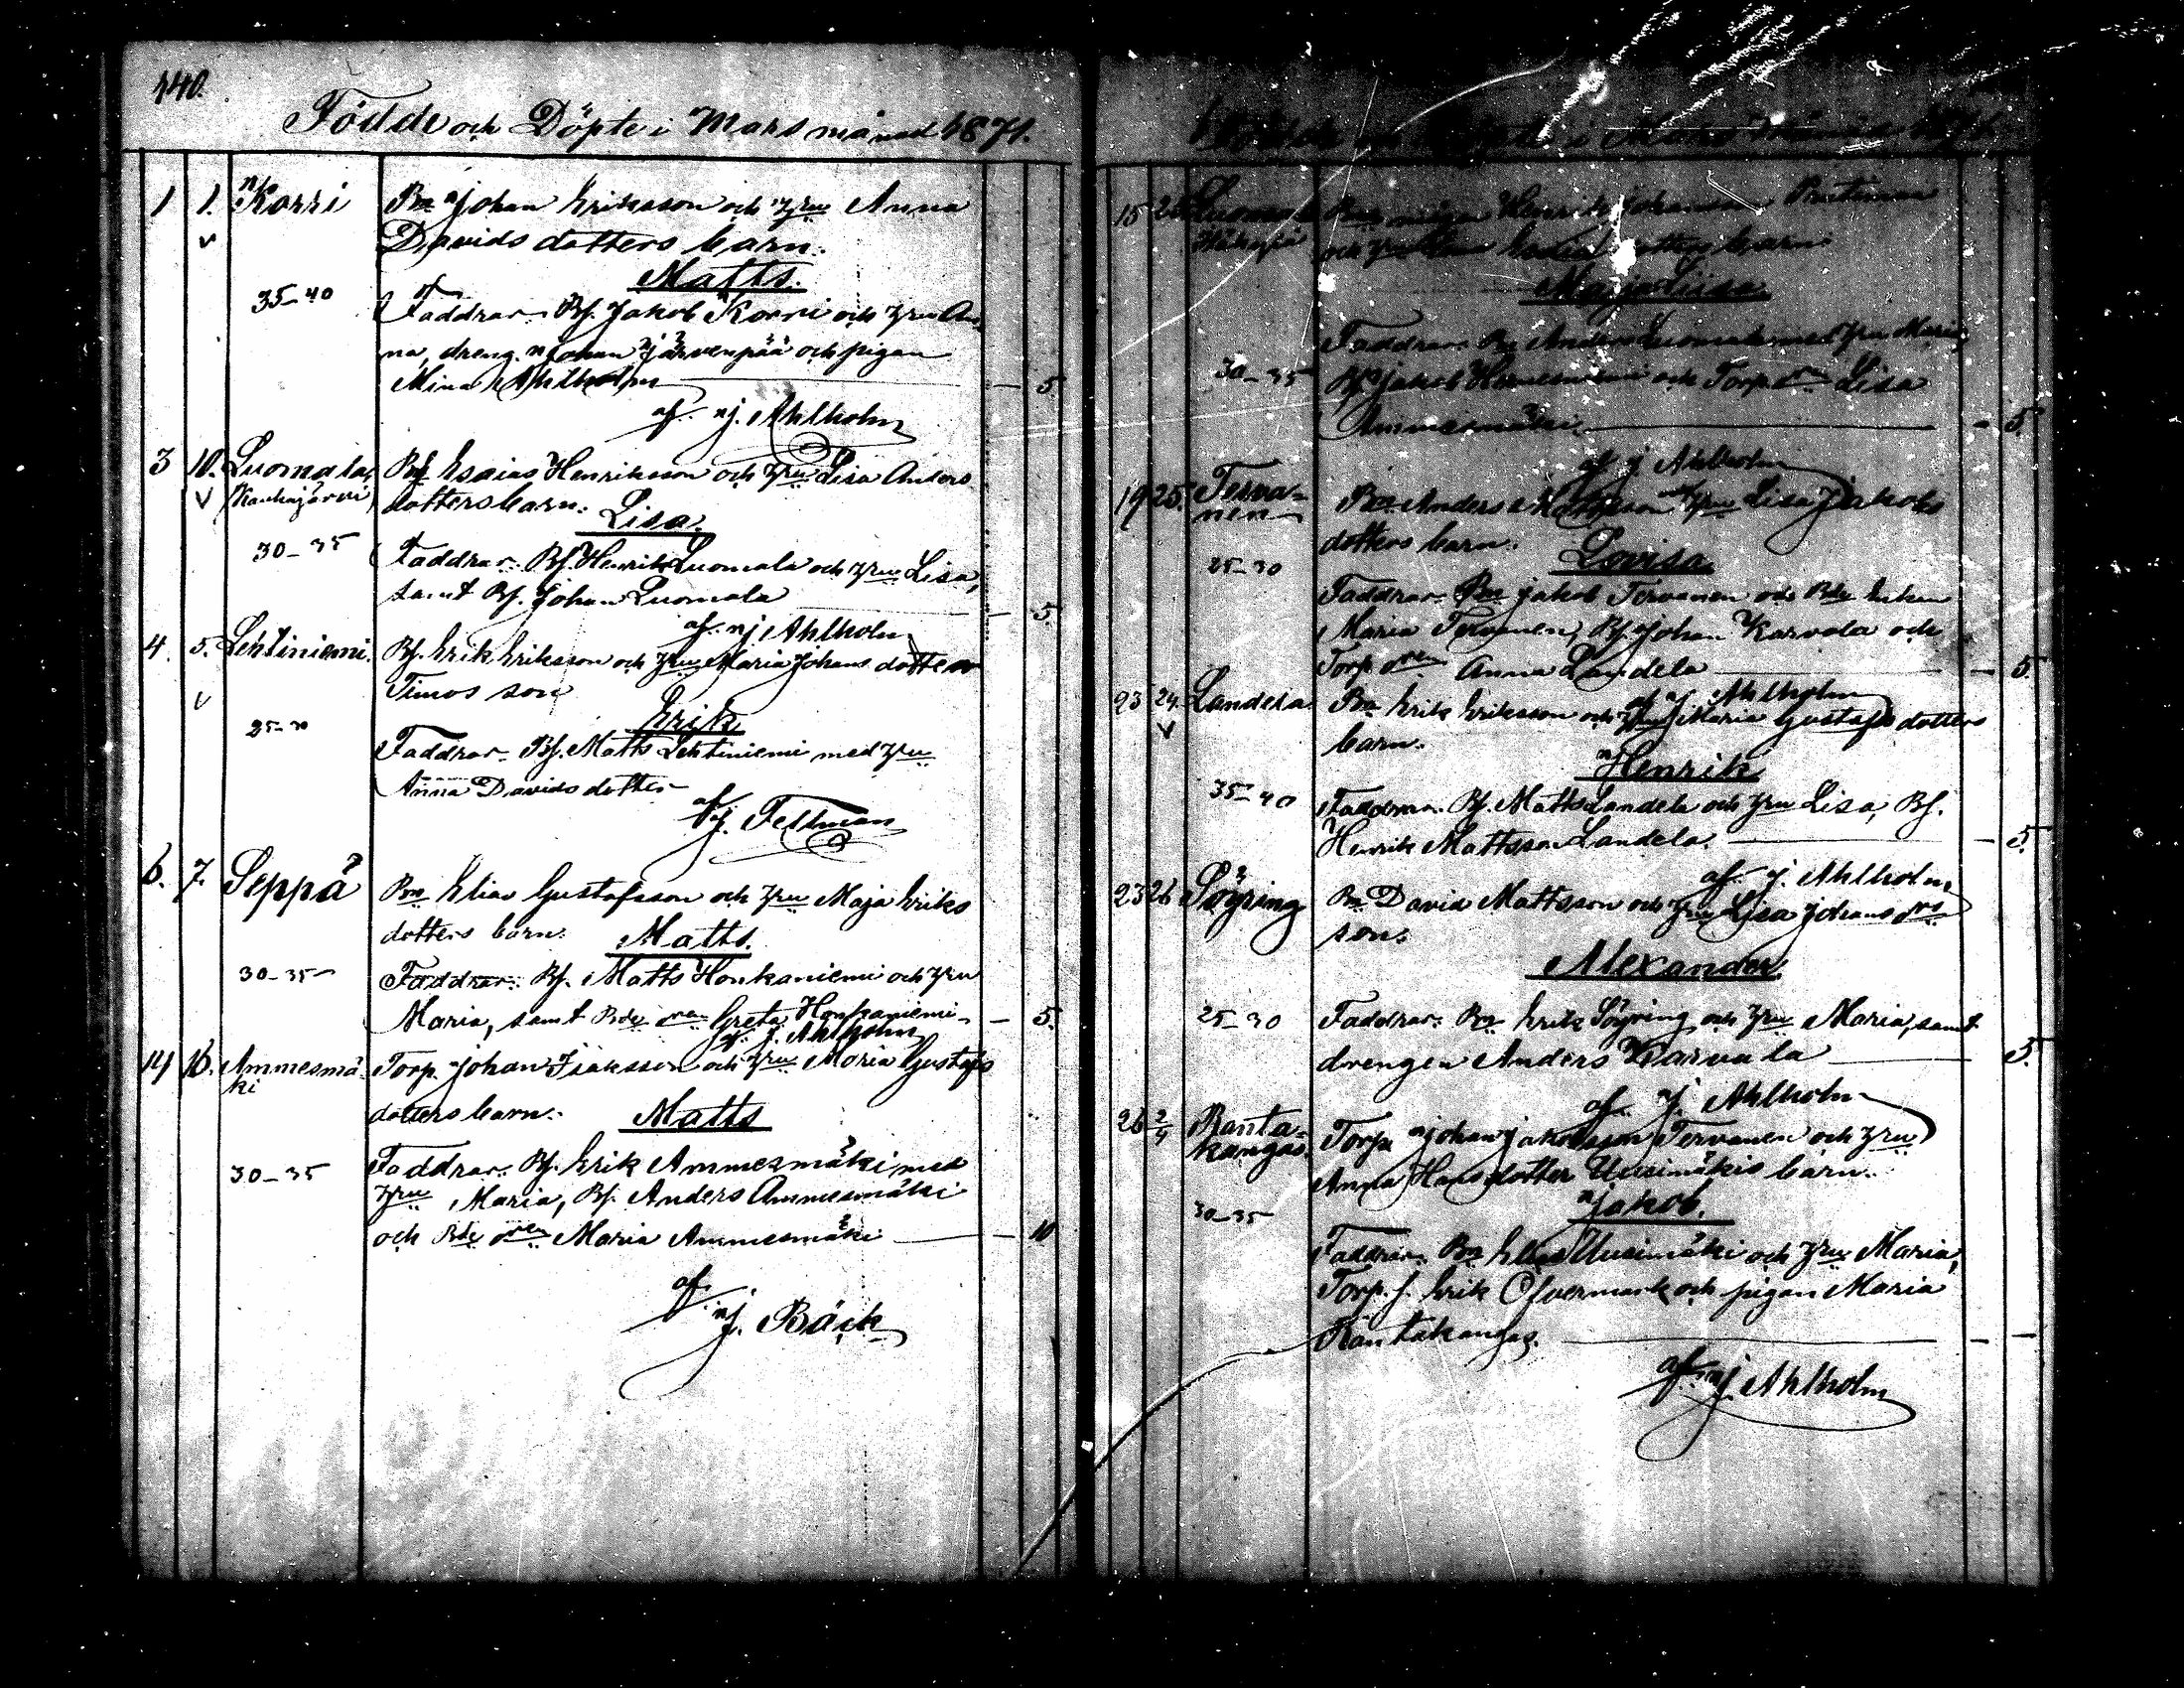 140.
Födde och Döpte i Mars månad 1871.
1 1. Korri Bn Johan Eriksson och hru Anna
Davids dotters barn.
Matts.
35-40 Faddrar: Bs. Jakob Korri och hru An-
na, dreng. Johan Järvenpää och pigan
Mina Ahlholm — 5.
af J. Ahlholm
3 10. Luomala, Bs Esaias Henriksson och hru Lisa Anders
(Kauhajärvi) dotters barn.
Lisa.
30-35 Faddrar: Bs. Henrik Luomala och hru Lisa,
samt Bs. Johan Luomala — 5.
af J. Ahlholm
4. 5. Lehtiniemi. Bs. Erik Eriksson och hru Maria Johans dotter
Timos son
Erik
25-30 Faddrar. Bs. Matts Lehtiniemi med hru
Anna Davids dotter
af J. Fellman
6. 7. Seppä Bn Elias Gustafsson och hru Maja Eriks
dotters barn.
Matts.
30-35 Faddrar: Bs. Matts Honkaniemi och hru
Maria, samt Bde dren Greta Honkaniemi — 5.
af J. Ahlholm
14 16. Ammesmä- Torp. Johan Isaksson och hru Maria Gustafs
ki
dotters barn.
Matts
30-35 Faddrar. Bs. Erik Ammesmäki med
hru Maria, Bs. Anders Ammesmäki
och Bde dren Maria Ammesmäki — 10
af
J. Bäck
i Mars
15 Luomala Henrik Johansson
och hru barn.
Maja Lisa.
Faddrar. Bn Anders Luomala med hru Maria,
30-35 Bs Jakob och Torp dren Lisa
Ammesmäki — 5.
af J Ahlholm
19 25. Terva- Bn Anders hru Lisa Jakobs
nen
dotters barn.
Lovisa.
25-30
Faddrar. Bn Jakob Tervanen och Bde Enkan
Maria Tervanen, Bs. Johan Karvala och
Torp dren Anna Landela — 5.
af J. Ahlholm
23 24. Landela Bn Erik Eriksson och hru Maria Gustafs dotters
barn.
Henrik
35-40 Faddrar. Bs. Matts Landela och hru Lisa, Bs.
Henrik Mattsson Landela. — 5.
af J. Ahlholm
23 26 Söyring Bn David Mattsson och hru Lisa Johans drs
son.
Alexander.
25-30 Faddrar: Bn Erik Söyring och hru Maria, samt
drengen Anders Karvala — 5.
af J. Ahlholm
26 2/4 Ranta- Torp. Johan Jakobsson Tervanen och hru
kangas. Anna Hans dotter Uusimäkis barn.
Jakob.
30-35
Faddrar. Bn Elias Uusimäki och hru Maria,
Torp. s. Erik Öfvermark och pigan Maria
Rantakangas. — —
af J. Ahlholm